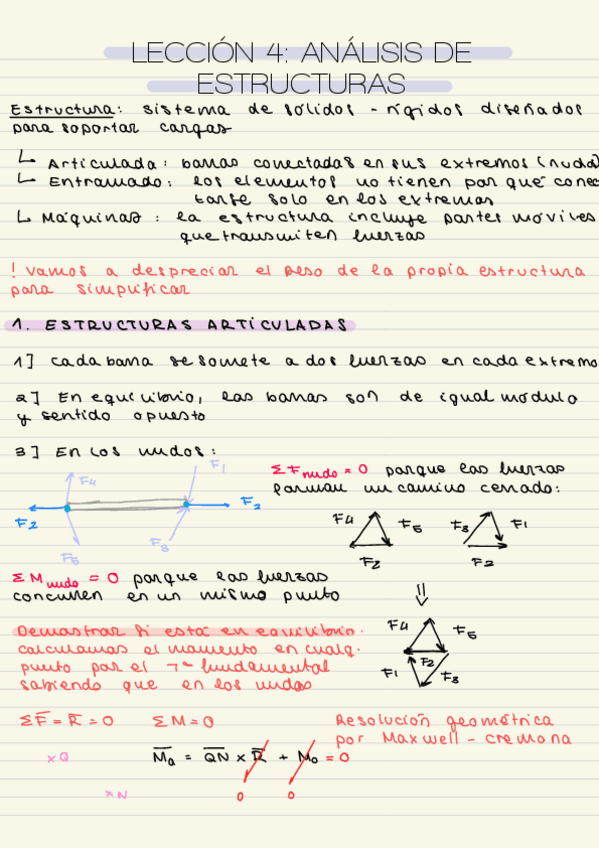 LECCIÓN 4: ANÁLISIS DE
ESTRUCTURAS
Estructura: sistema de sólidos - rígidos diseñados
para soportar cargas
↳ Articulada: barras conectadas en sus extremos (nudo)
↳ Entramado: los elementos no tienen por qué conec
tarse solo en los extremos
↳ Máquinas: la estructura incluye partes móviles
que transmiten fuerzas
! Vamos a despreciar el peso de la propia estructura
para simplificar
1. ESTRUCTURAS ARTICULADAS
1] Cada barra se somete a dos fuerzas en cada extremo
2] En equilibrio, las barras son de igual módulo
y sentido opuesto
3] En los nudos:
F4 F1
F2 F2
F5 F3
ΣFnudo = 0 porque las fuerzas
forman un camino cerrado:
F4 F5 F3 F1
F2 F2
ΣMnudo = 0 porque las fuerzas
concurren en un mismo punto
Demostrar si está en equilibrio.
calculamos el momento en cualq.
punto por el fundamental
sabiendo que en los nudos
F4 F5
F2
F1 F3
ΣF̅ = R̅ = 0 ΣM = 0
Resolución geométrica
por Maxwell - cremona
xQ M̅a = Q̅N̅ x R̅ + Mo = 0
xN 0 0